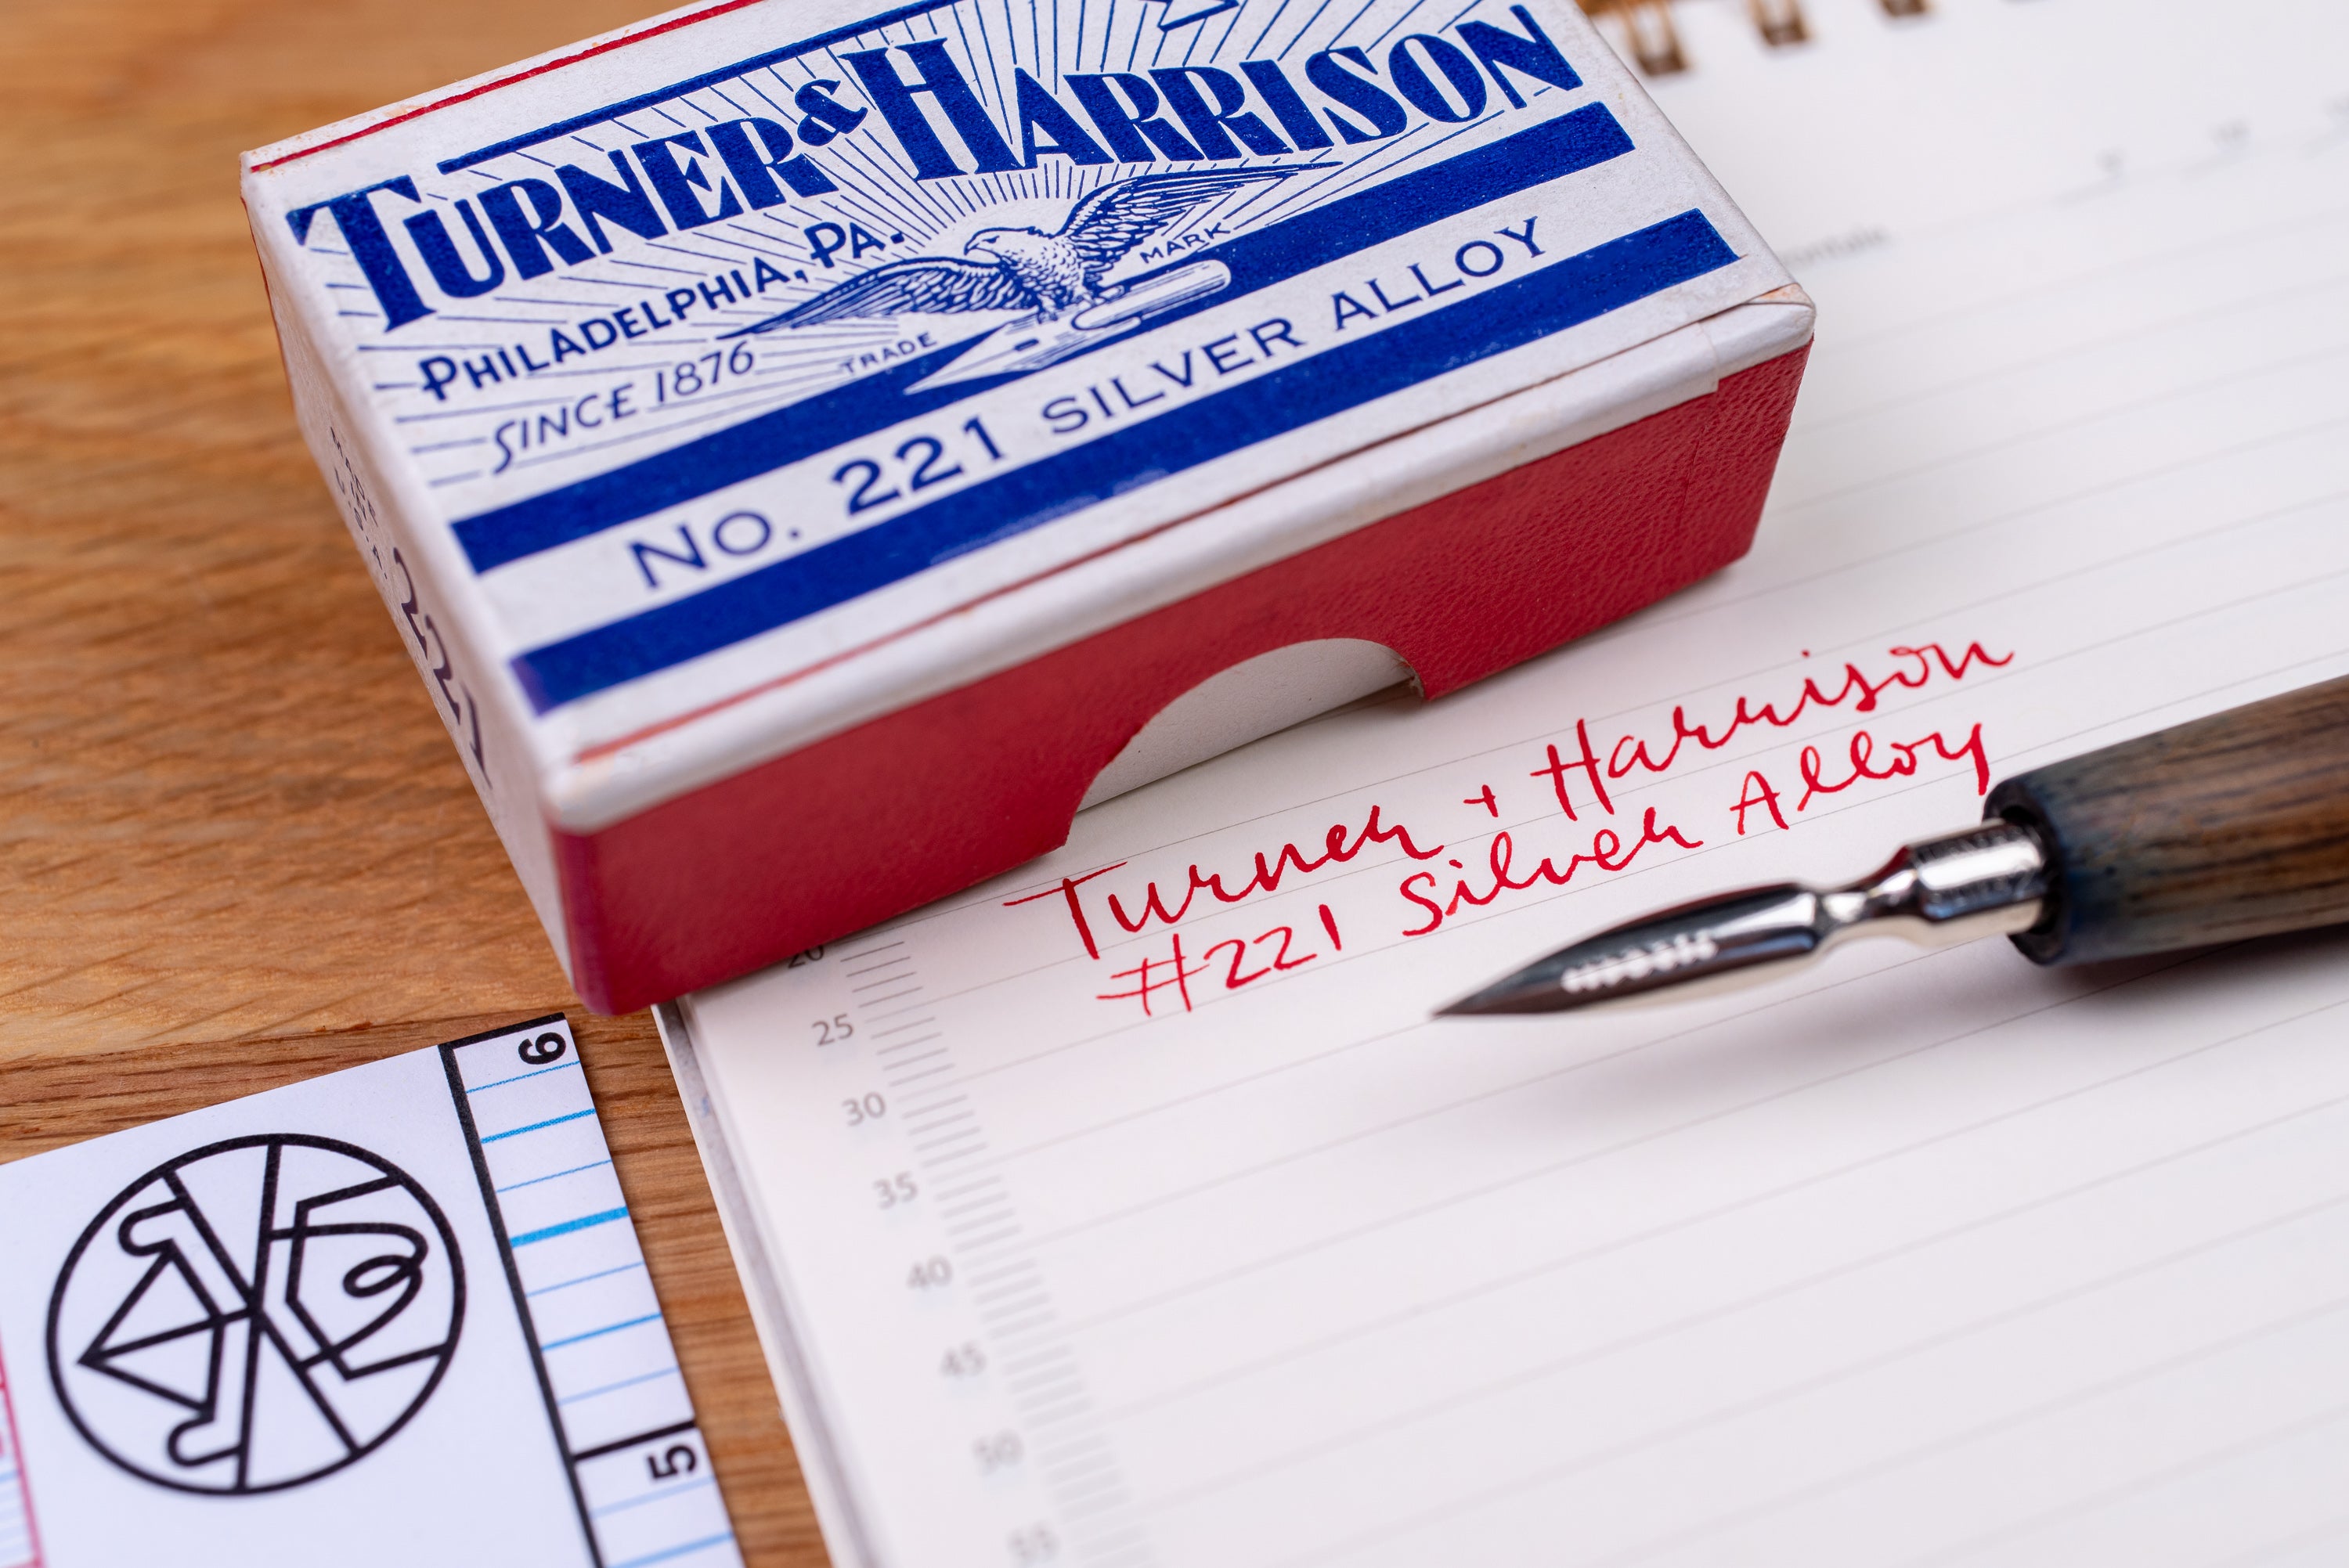 TURNER & HARRISON
PHILADELPHIA, PA.
SINCE 1876
TRADE MARK
No. 221 SILVER ALLOY
MADE
U.S.A.
221
Turner + Harrison
#221 Silver Alloy
20
25
30
35
40
45
50
55
6
5